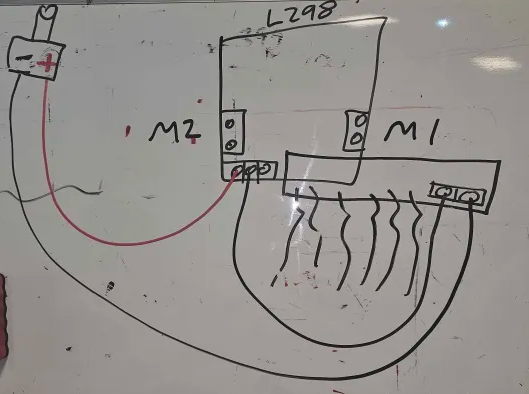 L298
- +
M2
M1